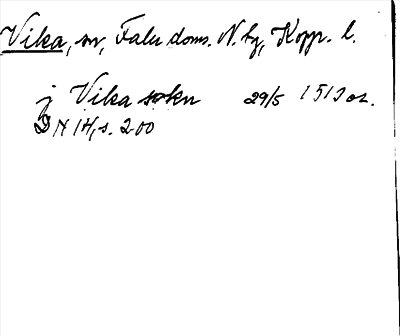 Vika, sn, Falu doms. N. bg, Kopp. l.
j Vika sokn 29/5 1513 or.
DN 14, s. 200